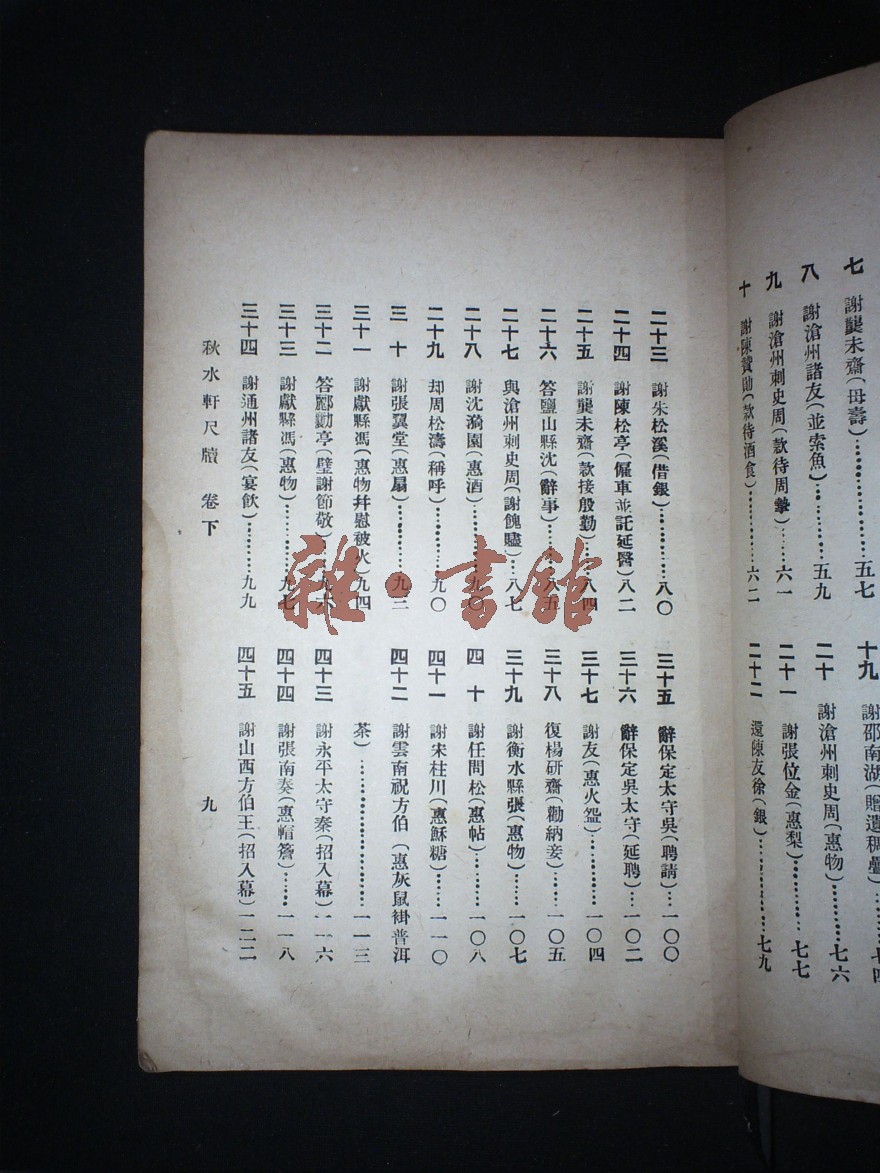 七 謝龔未齋(母壽)……五七
八 謝滄州諸友(並索魚)……五九
九 謝滄州刺史周(款待周摯)……六一
十 謝陳贊勛(款待酒食)……六二
十九 謝邵南湖(贈遺稠疊)……七四
二十 謝滄州刺史周(惠物)……七六
二十一 謝張位金(惠梨)……七七
二十二 還陳友徐(銀)……七九
二十三 謝朱松溪(借銀)……八〇
二十四 謝陳松亭(僱車並託延醫)八二
二十五 謝龔未齋(款接殷勤)……八四
二十六 答鹽山縣沈(辭事)……八五
二十七 與滄州刺史周(謝餽贐)……八七
二十八 謝沈漪園(惠酒)……九〇
二十九 却周松濤(稱呼)……九〇
三十 謝張翼堂(惠扇)……九三
三十一 謝獻縣馮(惠物幷慰被火)九四
三十二 答酈勳亭(璧謝節敬)……九六
三十三 謝獻縣馮(惠物)……九七
三十四 謝通州諸友(宴飲)……九九
三十五 辭保定太守吳(聘請)…一〇〇
三十六 辭保定吳太守(延聘)…一〇二
三十七 謝友(惠火盌)……一〇四
三十八 復楊研齋(勸納妾)…一〇五
三十九 謝衡水縣張(惠物)……一〇七
四十 謝任問松(惠帖)……一〇八
四十一 謝宋柱川(惠酥糖)……一一〇
四十二 謝雲南祝方伯(惠灰鼠褂普洱
茶)……一一三
四十三 謝永平太守秦(招入幕)一一六
四十四 謝張南奏(惠帽簷)……一一八
四十五 謝山西方伯王(招入幕)一二二
秋水軒尺牘 卷下
九
雜·書館